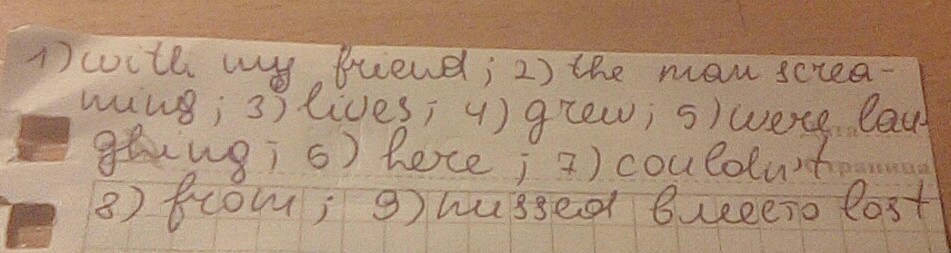 1) with my friend; 2) the man screa-
ming; 3) lives; 4) grew; 5) were lau-
ghing; 6) here; 7) couldn't
8) from; 9) missed вместо lost